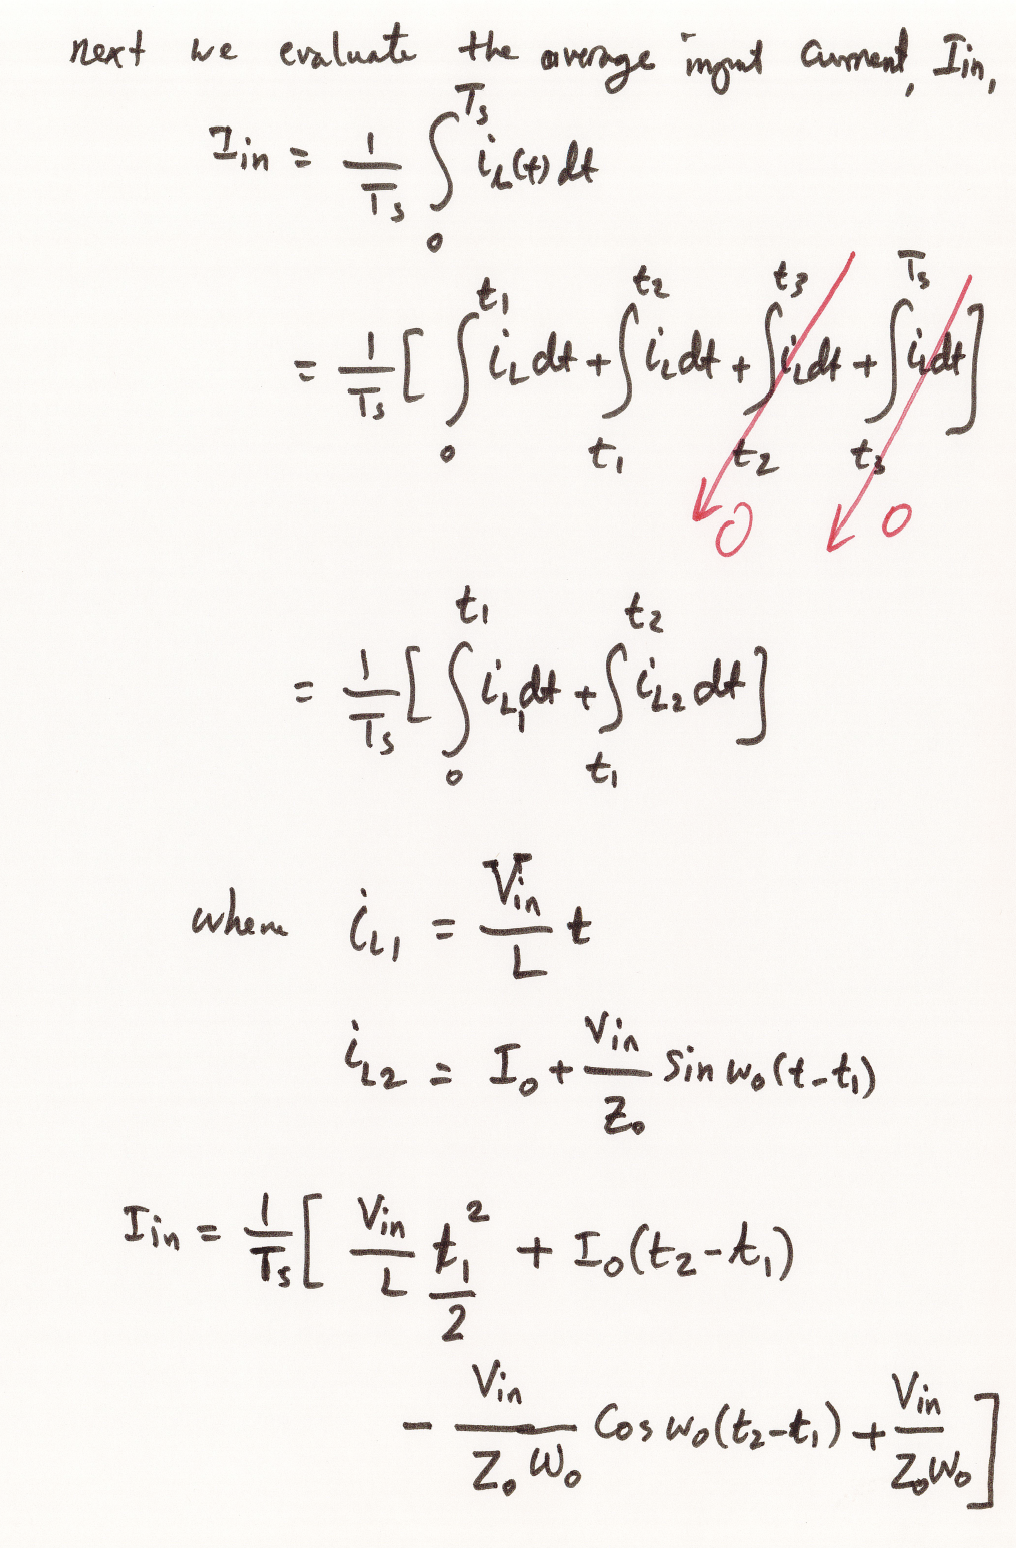 next we evaluate the average input current, Iin,
Iin = 1/Ts ∫₀^Ts iL(t) dt
= 1/Ts [ ∫₀^t1 iL dt + ∫t1^t2 iL dt + ∫t2^t3 iL dt + ∫t3^Ts iL dt ]
0 0
= 1/Ts [ ∫₀^t1 iL1 dt + ∫t1^t2 iL2 dt ]
where iL1 = Vin/L t
iL2 = Io + Vin/Zo Sin wo(t-t1)
Iin = 1/Ts [ Vin/L t1²/2 + Io(t2-t1)
- Vin/Zo wo Cos wo(t2-t1) + Vin/Zo wo ]